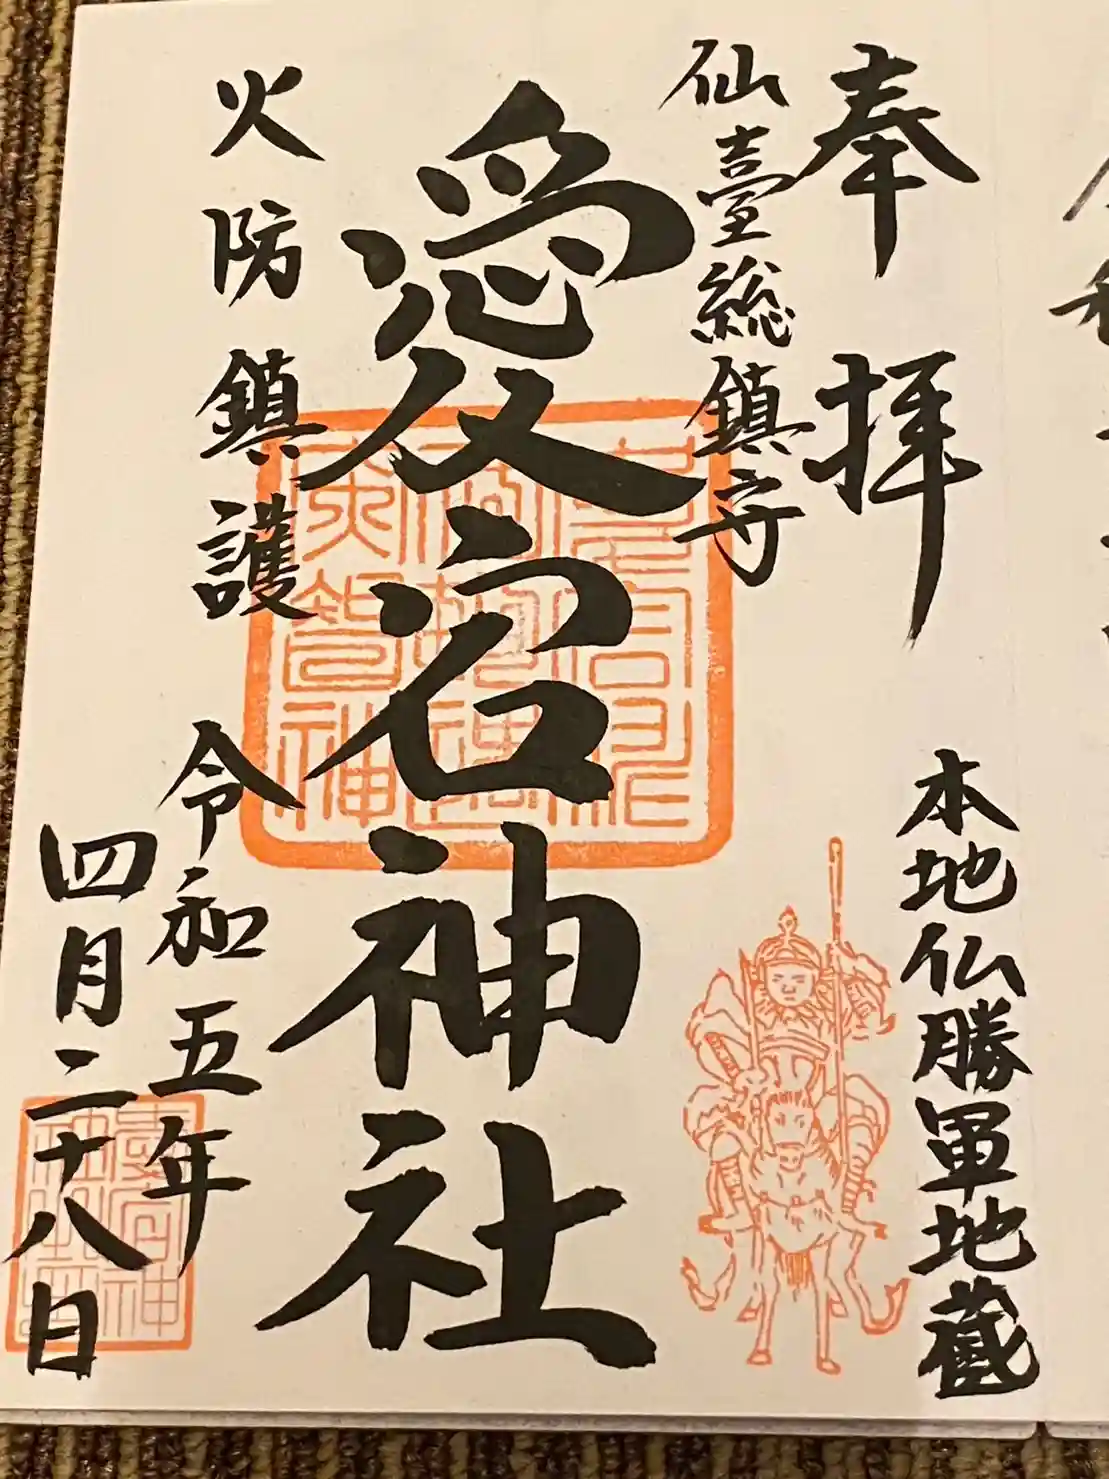 奉拝
本地仏勝軍地蔵
仙臺総鎮守
愛宕神社
火防鎮護
令和五年
四月二十八日